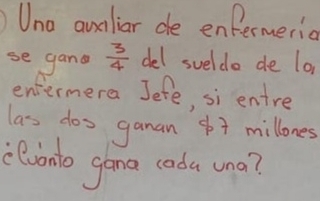 Una auxiliar de enfermería
se gana 3/4 del sueldo de la
enfermera Jefe, si entre
las dos ganan $7 millones
¿Cuánto gana cada una?